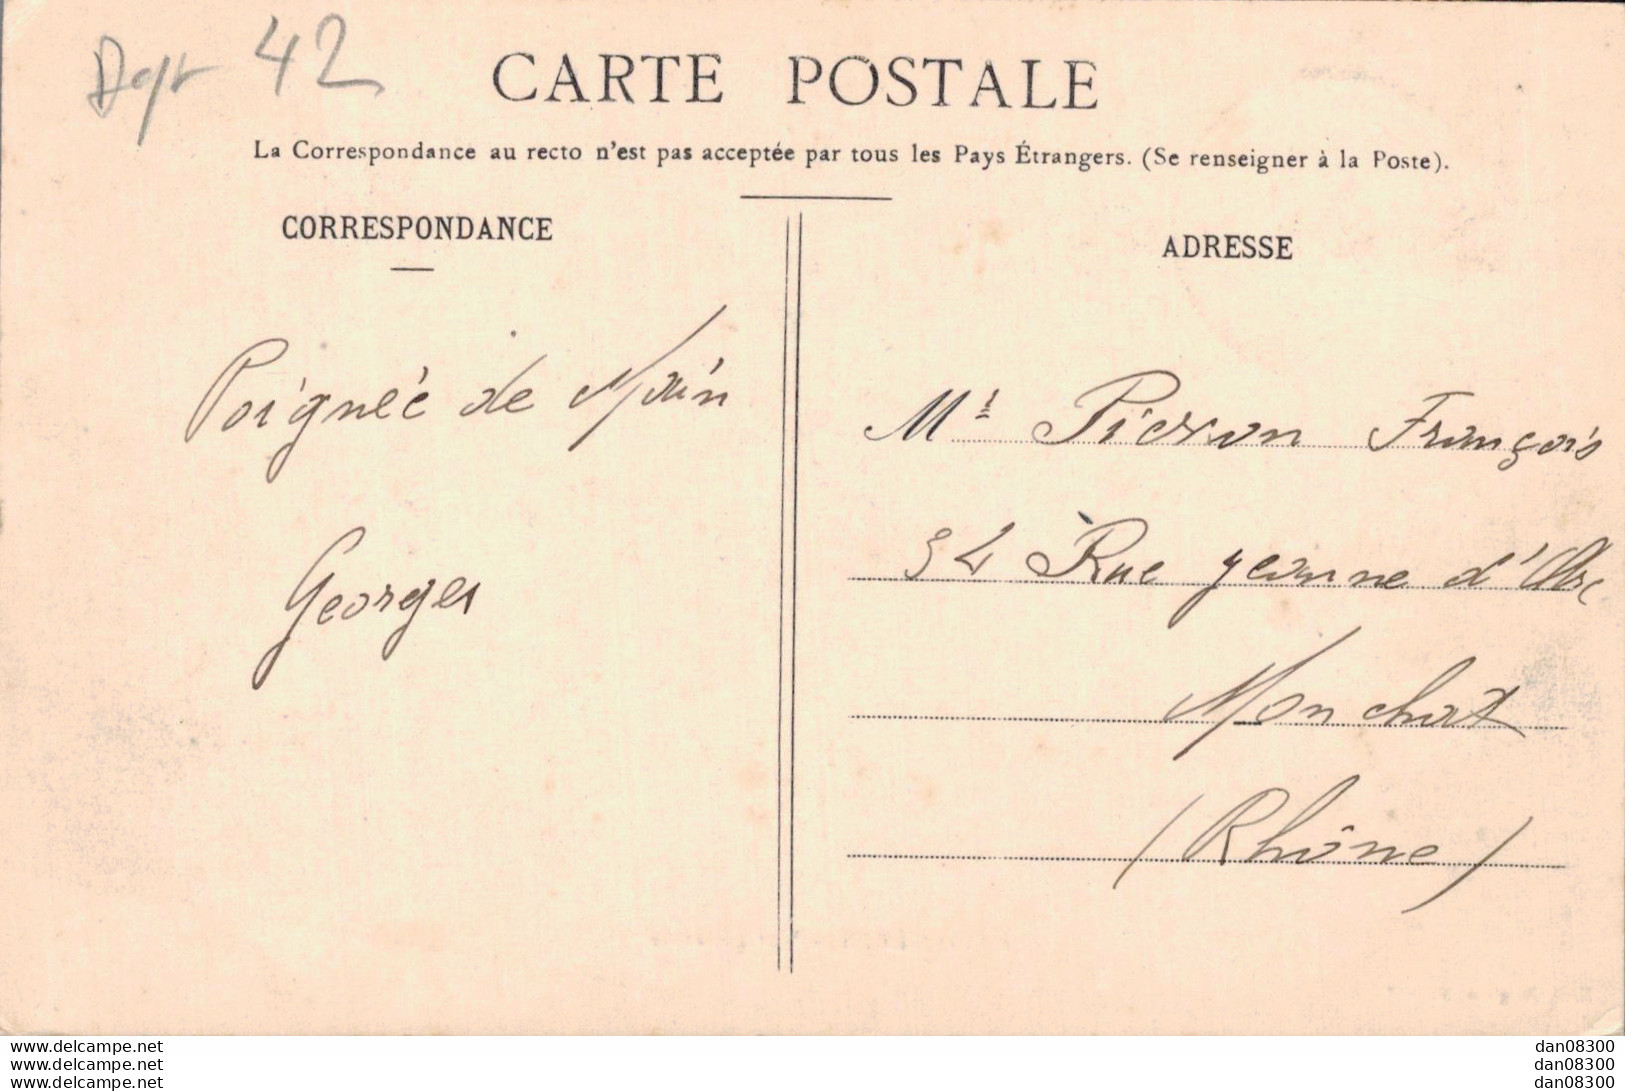 Dept 42
CARTE POSTALE
La Correspondance au recto n'est pas acceptée par tous les Pays Étrangers. (Se renseigner à la Poste).
CORRESPONDANCE
ADRESSE
Poignée de Main
Georges
Mr Pierron François
54 Rue Jeanne d'Arc
Monchat
(Rhône)
www.delcampe.net
www.delcampe.net
www.delcampe.net
dan08300
dan08300
dan08300